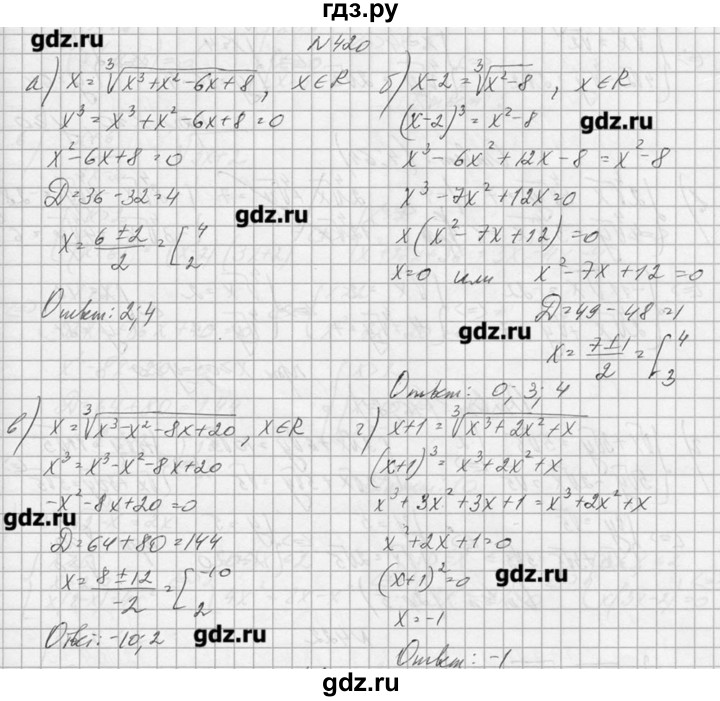 гдз.ру
gdz.ru
N420
а) x = ∛(x³+x²-6x+8), x∈R
x³ = x³+x²-6x+8=0
x²-6x+8=0
D=36-32=4
x = (6±2)/2 = [4 2
Ответ: 2; 4
gdz.ru
б) x-2 = ∛(x²-8), x∈R
gdz.ru
(x-2)³ = x²-8
x³-6x²+12x-8 = x²-8
x³-7x²+12x=0
x(x²-7x+12)=0
x=0 или x²-7x+12=0
D=49-48=1
gdz.ru
x = (7±1)/2 = [4 3
Ответ: 0; 3; 4
в) x = ∛(x³-x²-8x+20), x∈R
x³ = x³-x²-8x+20
-x²-8x+20=0
gdz.ru
D=64+80=144
x = (8±12)/-2 = [-10 2
Ответ: -10; 2
gdz.ru
г) x+1 = ∛(x³+2x²+x)
(x+1)³ = x³+2x²+x
x³+3x²+3x+1 = x³+2x²+x
x²+2x+1=0
(x+1)²=0
gdz.ru
x=-1
Ответ: -1
gdz.ru